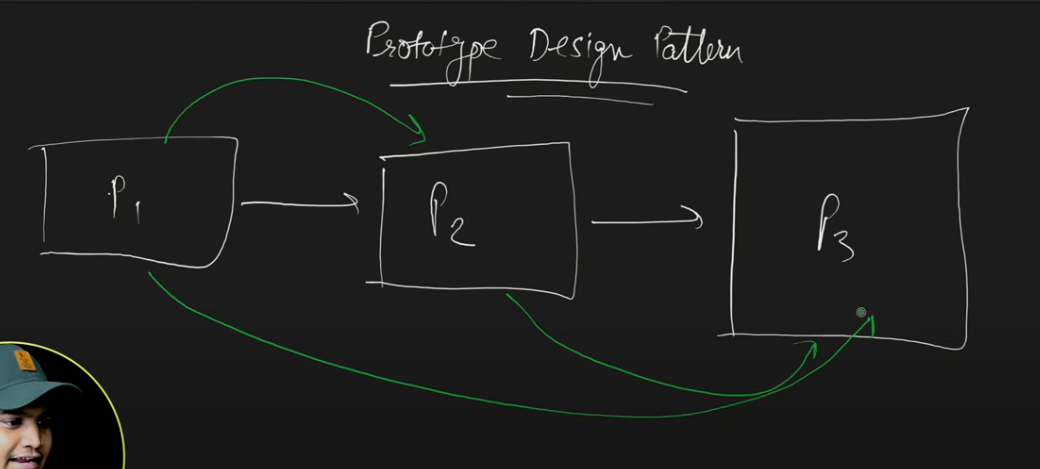 Prototype Design Pattern
P1
P2
P3